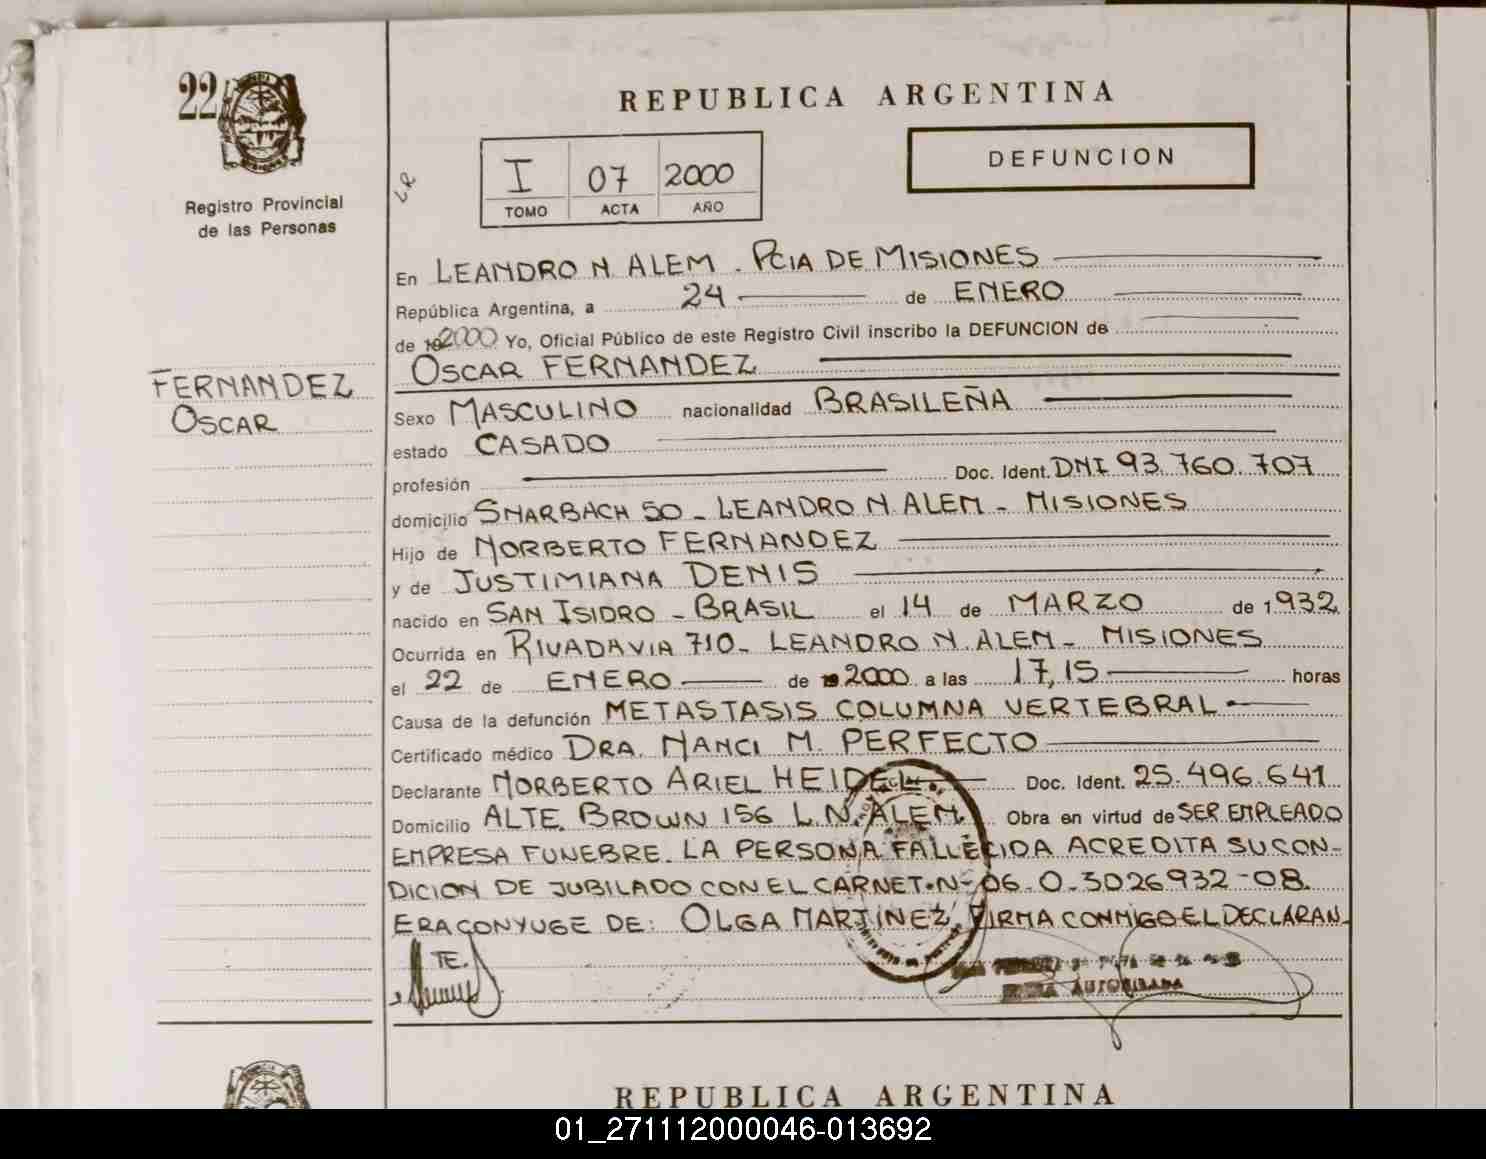 22
REPUBLICA ARGENTINA
DEFUNCION
I 07 2000
TOMO ACTA AÑO
Registro Provincial
de las Personas
En LEANDRO N. ALEM. PCIA DE MISIONES
República Argentina, a 24 de ENERO
de 192000 Yo, Oficial Público de este Registro Civil inscribo la DEFUNCION de
OSCAR FERNANDEZ
FERNANDEZ
OSCAR
Sexo MASCULINO nacionalidad BRASILEÑA
estado CASADO
profesión Doc. Ident. DNI 93.760.707
domicilio SHARBACH 50 - LEANDRO N. ALEM - MISIONES
Hijo de NORBERTO FERNANDEZ
y de JUSTIMIANA DENIS
nacido en SAN ISIDRO - BRASIL el 14 de MARZO de 1932
Ocurrida en RIVADAVIA 710 - LEANDRO N. ALEM - MISIONES
el 22 de ENERO de 192000 a las 17,15 horas
Causa de la defunción METASTASIS COLUMNA VERTEBRAL
Certificado médico DRA. NANCI M. PERFECTO
Declarante NORBERTO ARIEL HEIDEL Doc. Ident. 25.496.641
Domicilio ALTE. BROWN 156 L.N. ALEM. Obra en virtud de SER EMPLEADO
EMPRESA FUNEBRE. LA PERSONA FALLECIDA ACREDITA SU CON-
DICION DE JUBILADO CON EL CARNET. Nº 06.0.3026932-08.
ERA CONYUGE DE: OLGA MARTINEZ. FIRMA CONMIGO EL DECLARAN-
TE.
FIRMA AUTORIZADA
REPUBLICA ARGENTINA
01_271112000046-013692